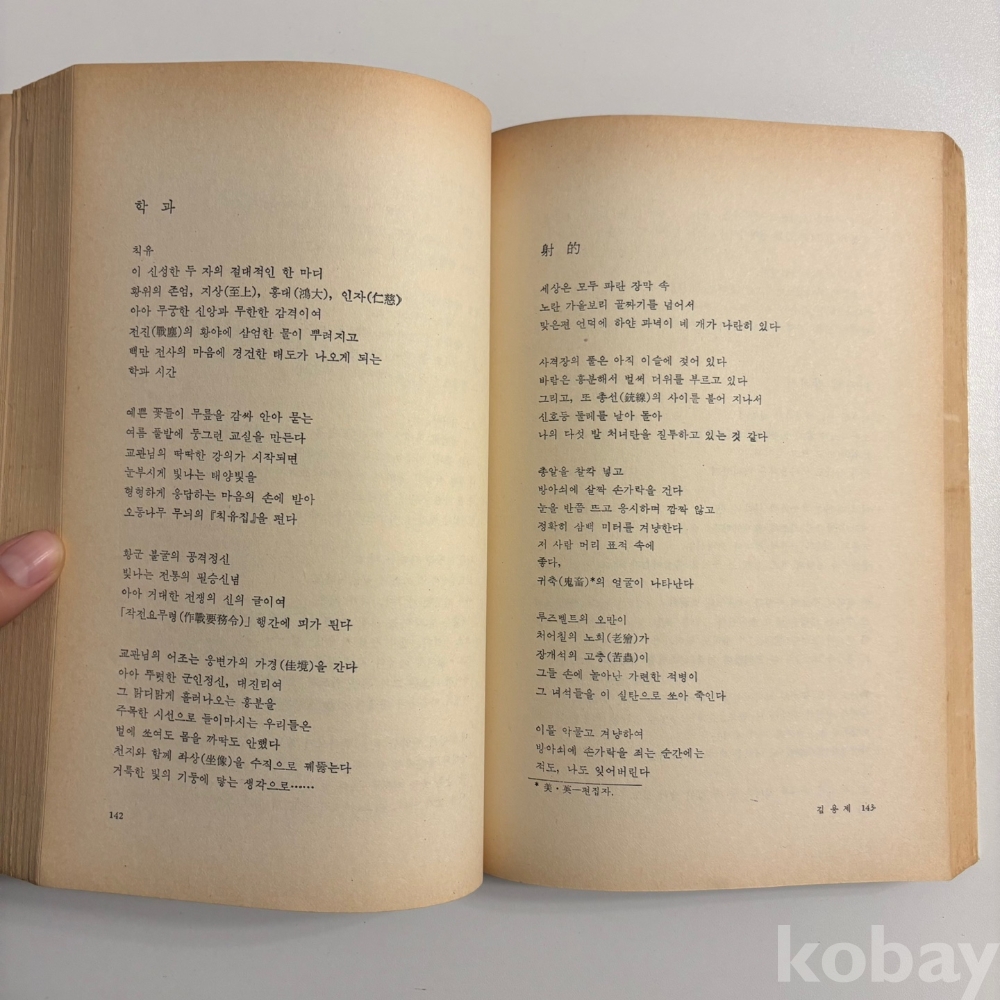 학 과
칙유
이 신성한 두 자의 절대적인 한 마디
황위의 존엄, 지상(至上), 홍대(鴻大), 인자(仁慈)
아아 무궁한 신앙과 무한한 감격이여
전진(戰塵)의 황야에 삼엄한 물이 뿌려지고
백만 전사의 마음에 경건한 태도가 나오게 되는
학과 시간
예쁜 꽃들이 무릎을 감싸 안아 묻는
여름 풀밭에 둥그런 교실을 만든다
교관님의 딱딱한 강의가 시작되면
눈부시게 빛나는 태양빛을
형형하게 응답하는 마음의 손에 받아
오동나무 무늬의 『칙유집』을 편다
황군 불굴의 공격정신
빛나는 전통의 필승신념
아아 거대한 전쟁의 신의 글이여
「작전요무령(作戰要務令)」 행간에 피가 뛴다
교관님의 어조는 웅변가의 가경(佳境)을 간다
아아 뚜렷한 군인정신, 대진리여
그 맑디맑게 흘러나오는 흥분을
주목한 시선으로 들이마시는 우리들은
벌에 쏘여도 몸을 까딱도 안했다
천지와 함께 좌상(坐像)을 수직으로 꿰뚫는다
거룩한 빛의 기둥에 닿는 생각으로……
142
射 的
세상은 모두 파란 장막 속
노란 가을보리 골짜기를 넘어서
맞은편 언덕에 하얀 과녁이 네 개가 나란히 있다
사격장의 풀은 아직 이슬에 젖어 있다
바람은 흥분해서 벌써 더위를 부르고 있다
그리고, 또 총선(銃線)의 사이를 불어 지나서
신호등 둘레를 날아 돌아
나의 다섯 발 처녀탄을 질투하고 있는 것 같다
총알을 찰칵 넣고
방아쇠에 살짝 손가락을 건다
눈을 반쯤 뜨고 응시하며 깜짝 않고
정확히 삼백 미터를 겨냥한다
저 사람 머리 표적 속에
좋다,
귀축(鬼畜)*의 얼굴이 나타난다
루즈벨트의 오만이
처어칠의 노회(老獪)가
장개석의 고충(苦蟲)이
그들 손에 놀아난 가련한 적병이
그 녀석들을 이 실탄으로 쏘아 죽인다
이를 악물고 겨냥하여
방아쇠에 손가락을 죄는 순간에는
적도, 나도 잊어버린다
* 美·英—편집자.
김 용 제 143
kobay